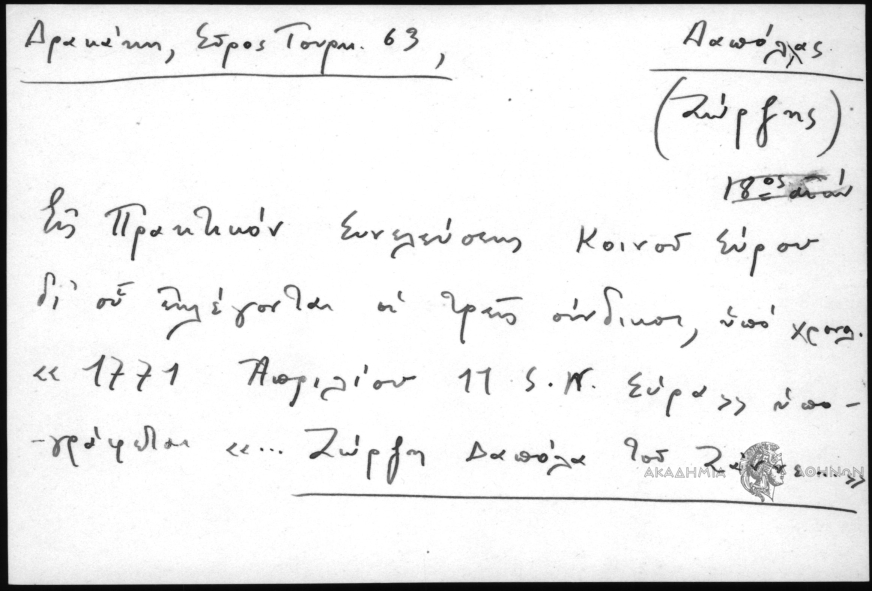 Δρακάκη, Σῦρος Τουρκ. 63,
Δαπόλας
(Ζώρζης)
18ος αἰών
Εἰς Πρακτικόν Συνελεύσεως Κοινοῦ Σύρου
δι' οὗ ἐκλέγονται οἱ τρεῖς σύνδικοι, ὑπό χρονολ.
« 1771 Ἀπριλίου 11 S. N. Σύρα» ὑπο-
-γράφεται «... Ζώρζη Δαπόλα τοῦ ...»
ΑΚΑΔΗΜΙΑ ΑΘΗΝΩΝ